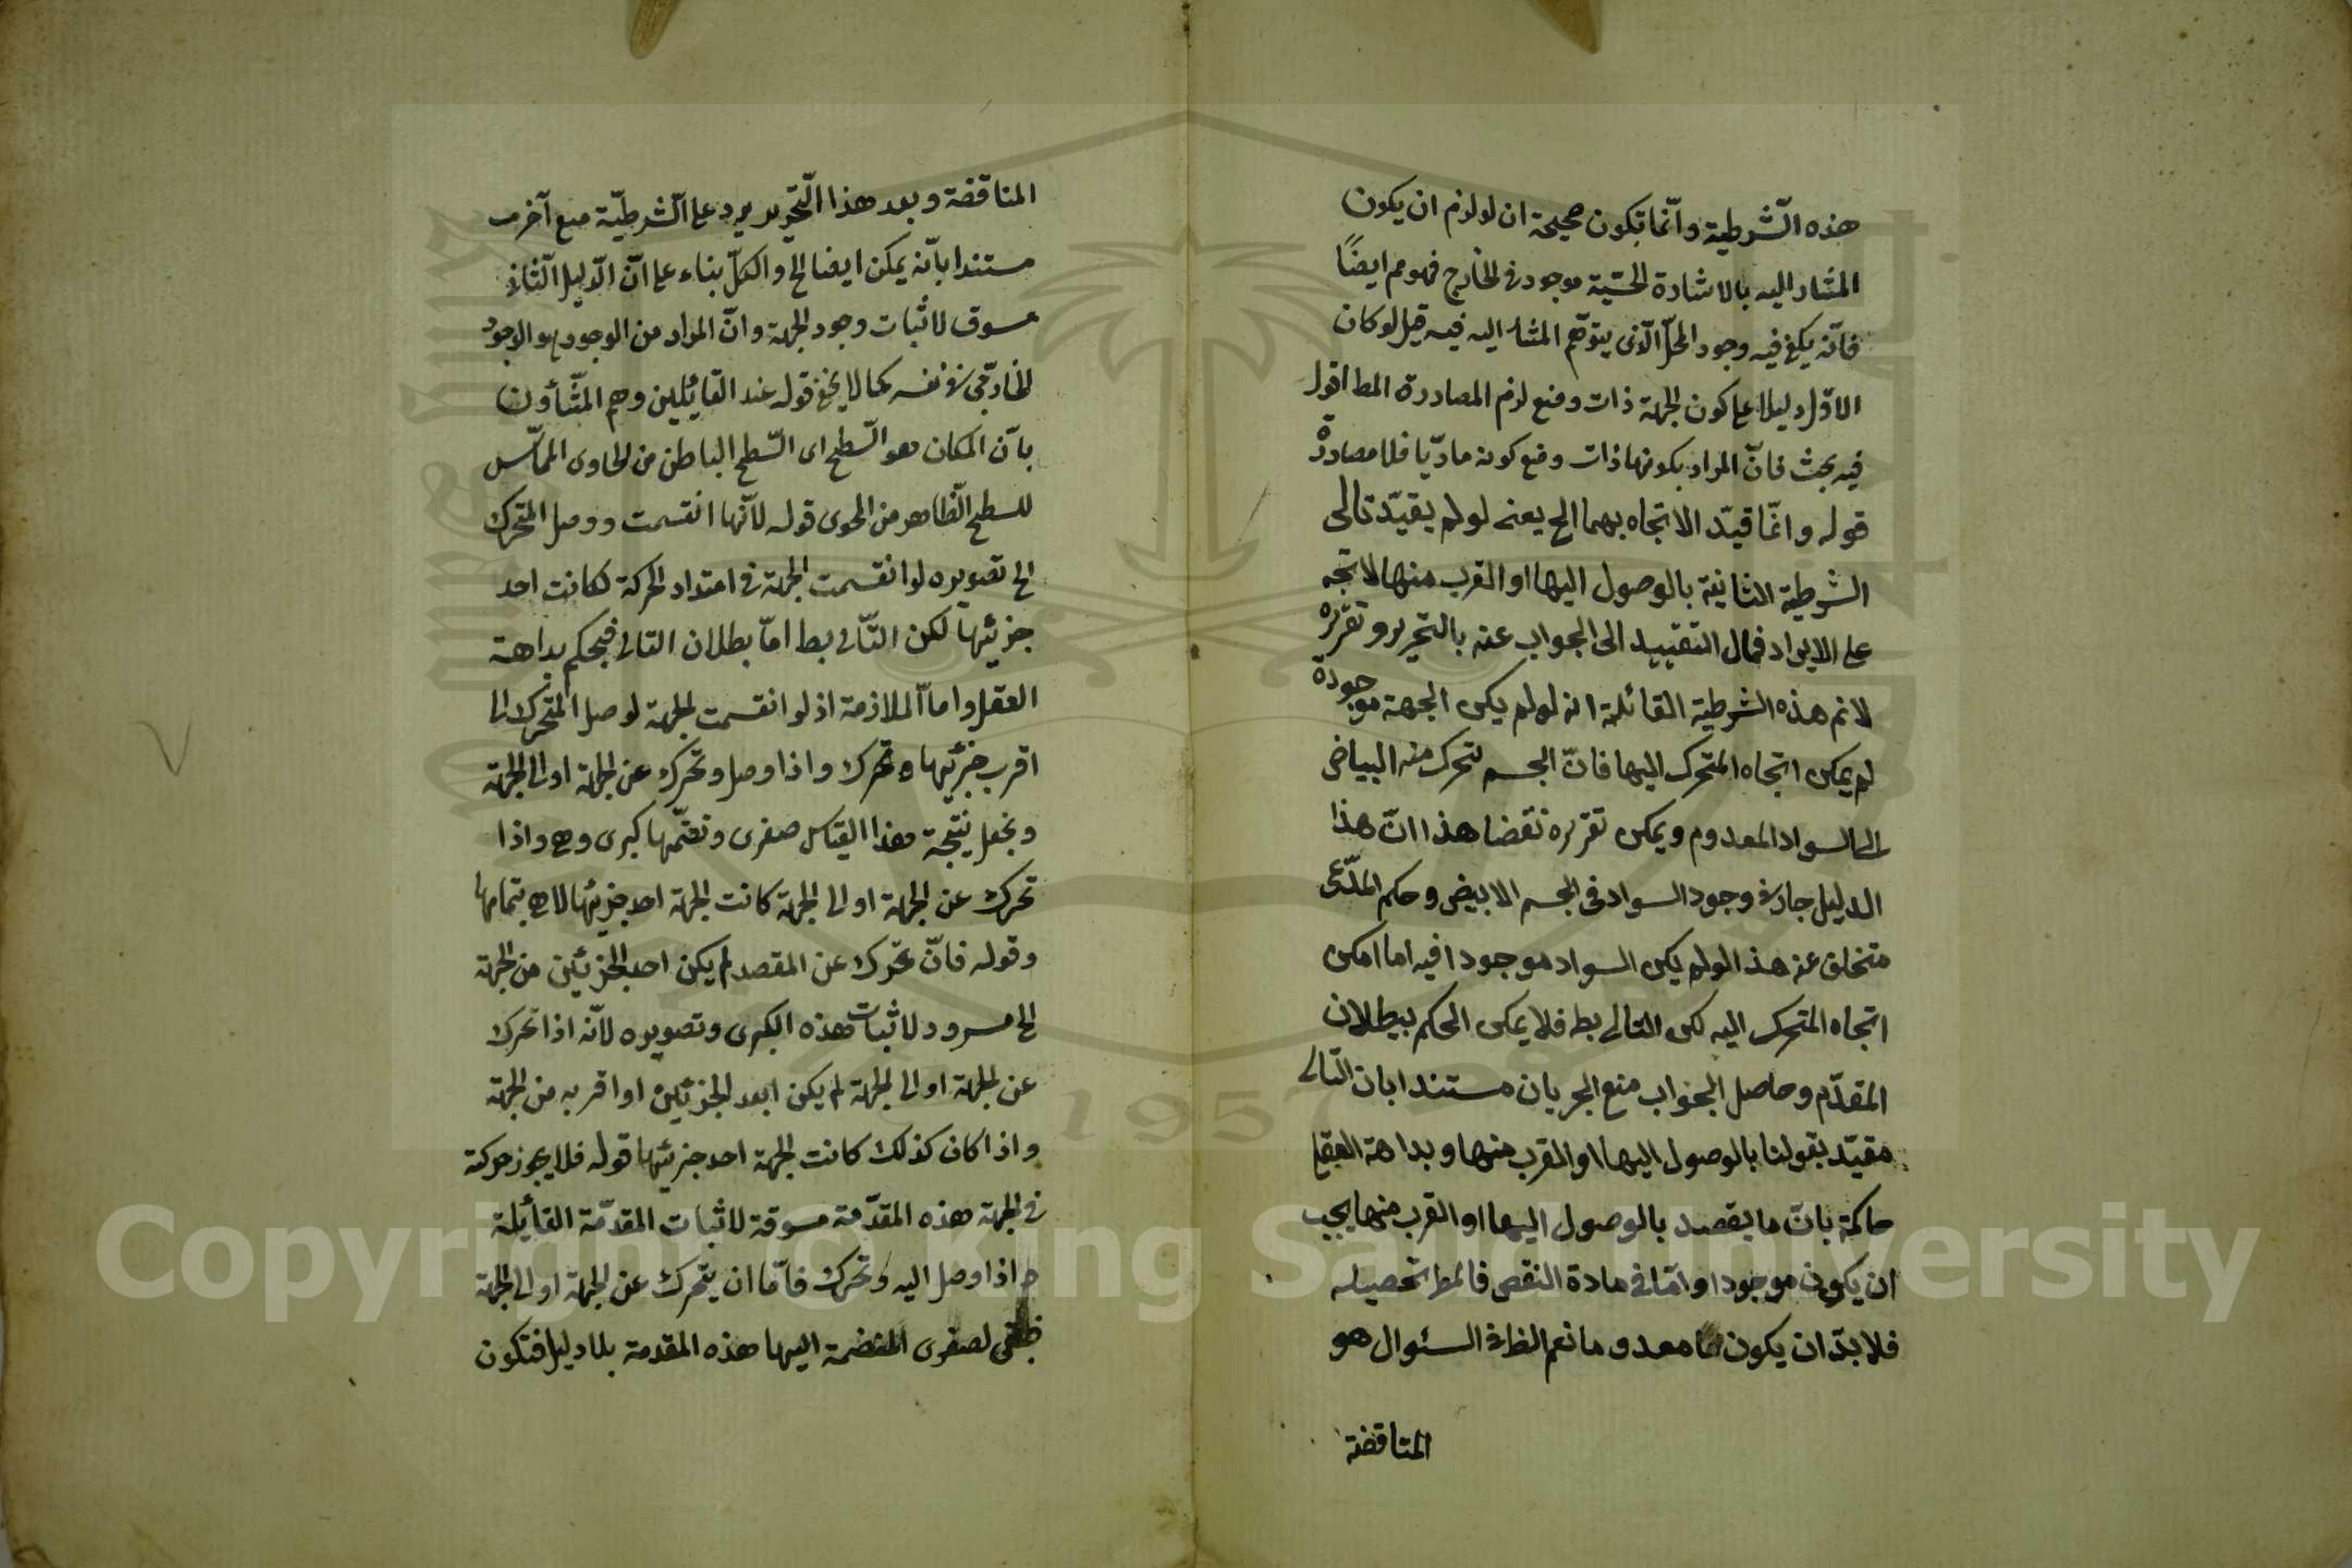 هذه الشّرطية وانّما تكون صحيحة ان لو لزم ان يكون
المشار اليه بالاشارة الحسّية موجود فى الخارج فهو مم ايضًا
فانّه يكفى فيه وجود المحلّ الّذى يتوهّم المشار اليه فيه قيل لو كان
الاوّل دليلا على كون الجهة ذات وضع لزم المصادرة المط اقول
فيه بحث فانّ المراد بكونها ذات وضع كونه ماديّا فلا مصادرة
قوله وانّما قيّد الاتجاه بهما الخ يعنى لو لم يقيّد تالى
الشرطية الثانية بالوصول اليها او القرب منها لاتجه
على الايراد فمال التقييد الى الجواب عنه بالتحرير وتقريره
لانم هذه الشرطية القائلة انه لو لم يكن الجهة موجودة
لم يمكن اتجاه المتحرك اليها فانّ الجسم تحرك منه البياض
الى السواد المعدوم ويمكن تقريره نقضا هذا انّ هذا
الدليل جار فى وجود السواد فى الجسم الابيض وحكم المدّعى
متخلف عنه هذا لو لم يكن السواد موجودا فيه اما امكن
اتجاه المتحرك اليه لكن التالى بط فلا يمكن الحكم ببطلان
المقدّم وحاصل الجواب منع الجريان مستندا بان التالى
مقيّد بقولنا بالوصول اليها او القرب منها وبداهة العقل
حاكمة بانّ ما يقصد بالوصول اليها او القرب منها يجب
ان يكون موجودا وامّا فى مادة النقض فالمط تحصيله
فلا بدّ ان يكون معدوما نعم الظ فى السئوال هو
المناقضة
المناقضة وبعد هذا التّحرير يرد على الشّرطيّة منع آخر
مستندا بانّه يمكن ايضا الخ والكلّ بناء على انّ الدّليل الثّانى
مسوق لاثبات وجود الجهة وانّ المراد من الوجود هو الوجود
الخارجّى فى نفسه كما لا يخفى قوله عند القايلين وهم المشّاؤن
بانّ المكان هو السّطح اى السّطح الباطن من الحاوى المماسّ
للسطح الظّاهر من المحوى قوله لانّها انقسمت ووصل المتحرك
الخ تصويره لو انقسمت الجهة فى امتداد الحركة لكانت احد
جزئيها لكن التّالى بط امّا بطلان التالى فيحكم بداهة
العقل واما الملازمة اذ لو انقسمت الجهة لوصل المتحرك الى
اقرب جزئيها وتحرك واذا وصل وتحرك عن الجهة او الى الجهة
ونجعل نتيجة هذا القياس صغرى ونضمّها كبرى وهى واذا
تحرك عن الجهة او الى الجهة كانت الجهة احد جزئيها لا هى بتمامها
وقوله فانّ تحرّك عن المقصد لم يكن احد الجزئين من الجهة
الخ مسرود لاثبات هذه الكبرى وتصويره لانّه اذا تحرك
عن الجهة او الى الجهة لم يكن ابعد الجزئين او اقربه من الجهة
واذا كان كذلك كانت الجهة احد جزئيها قوله فلا يجوز حركته
فى الجهة هذه المقدّمة مسوقة لاثبات المقدّمة القائلة
اذا وصل اليه وتحرك فامّا ان يتحرك عن الجهة او الى الجهة
لصغرى المنضمة اليها هذه المقدمة بلا دليل فتكون
Copyright © King Saud University
1957